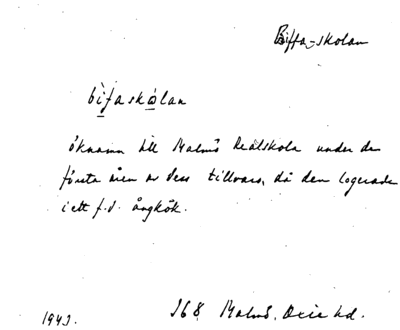 Biffa-skolan
bìfaskålan
öknamn till Malmö Realskola under de
första åren av dess tillvaro, då den logerade
i ett f.d. ångkök.
1943.
768 Malmö, Oxie hd.